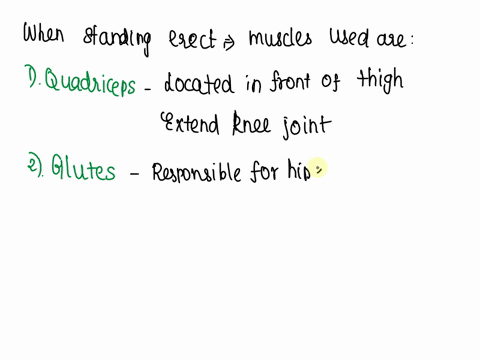 When standing erect ⇒ muscles used are:
1). Quadriceps - Located in front of thigh
Extend knee joint
2). Glutes - Responsible for hip